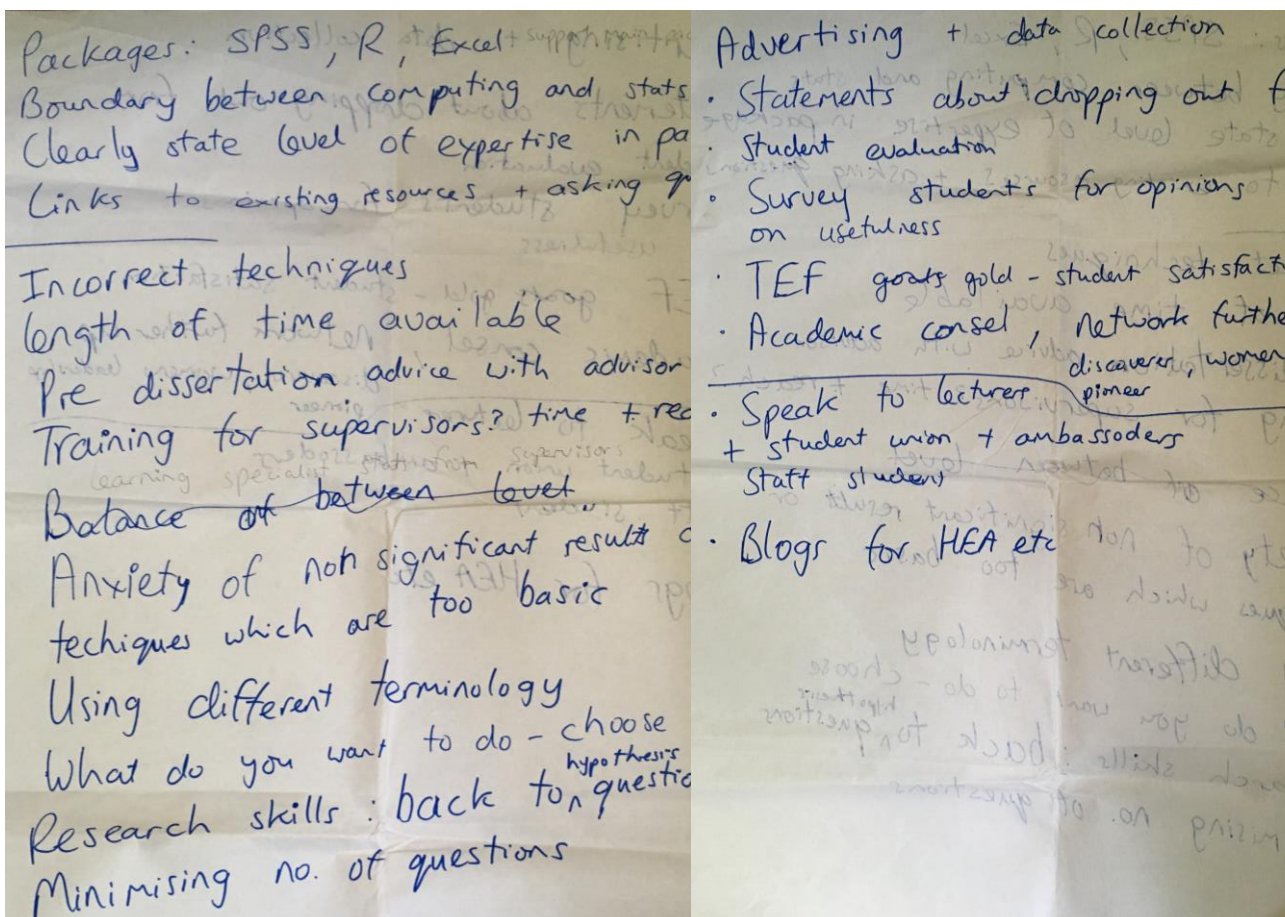 Packages: SPSS, R, Excel
Boundary between computing and stats
Clearly state level of expertise in pa
Links to existing resources + asking qu
Incorrect techniques
length of time available
Pre dissertation advice with advisor
Training for supervisors? time + rec
learning specialist supervisors
Balance of between level
Anxiety of non significant results o
techiques which are too basic
Using different terminology
What do you want to do - choose
hypothesis
Research skills: back to ^ questio
Minimising no. of questions
Advertising + data collection
· Statements about dropping out f
· Student evaluation
· Survey students for opinions
on usefulness
· TEF goats gold - student satisfact
· Academic consel, network furthe
discoverer, women
pioneer
· Speak to lecturers
+ student union + ambassoders
Staff student
· Blogs for HEA etc